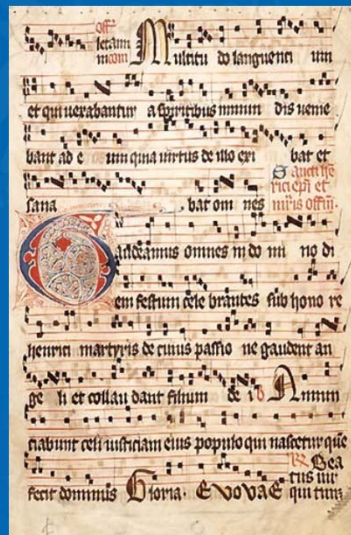 Offm
letami
ni com Multitu do languenti um
et qui vexabantur a spiritibus inmun dis venie
bant ad e um quia virtus de illo exi bat et
sana bat om nes Sancti he
rici epi et
mris offm.
Gaudeamus omnes in do mi no di
em festum cele brantes sub hono re
henrici martyris de cuius passio ne gaudent an
ge li et collau dant filium de i Annun
ciabunt celi iusticiam eius populo qui nascetur que
fecit dominus Gloria. Evovae Bea
tus vir
qui tim